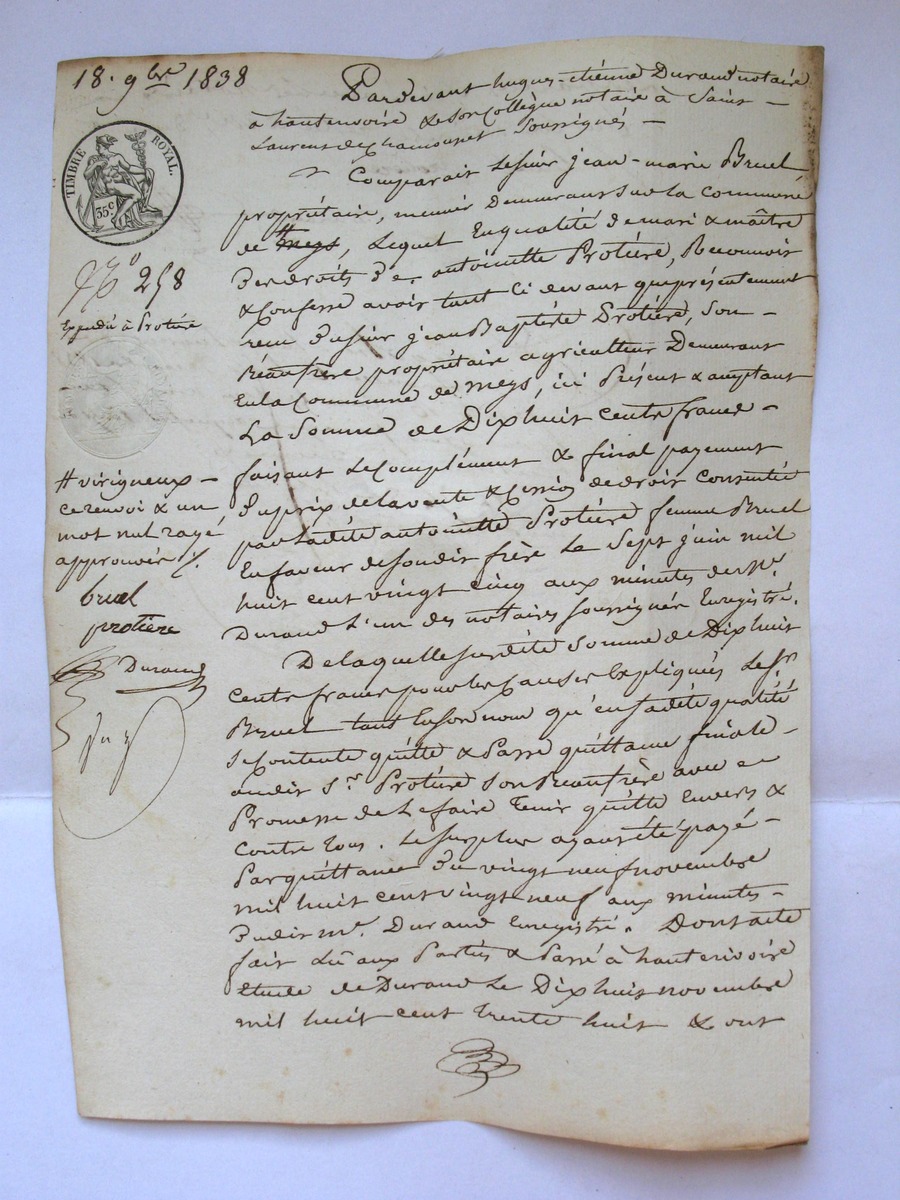 18. 9bre 1838
Pardevant hugues-etiénne Durand notaire
à hauterivoire & son Collègue notaire à Saint-
Laurent de Chamousset Soussignés -
Comparait Le Sieur jean-marie Bruel
propriétaire, meunier Demeurant Sur La Commune
de # meys, Lequel En qualité de mari & maître
Des droits D'e. antoinette Protiére, Reconnoit
& Confesse avoir tant Ci devant que présentement
recu du sieur jean Baptiste Protiére, Son
Beaufrère propriétaire agriculteur Demeurant
En La Commune de meys, ici Présent & acceptant
La Somme de Dix huit cents francs -
faisant Le Complément & final payement
Du prix de La vente & Cession de droit Consentie
par Ladite antoinette Protiére femme Bruel
En faveur de Sondit frère Le Sept juin mil
huit cent vingt cinq aux minutes de Me.
Durand L'un des notaires Soussignés Enregistré.
De laquelle susdite Somme de Dix huit
cents francs pour les Causes Expliquées Le Sr
Bruel tant En son nom qu'en sadite qualité
Se Contente quitte & Passe quittance finale -
audit Sr. Protiére Son Beaufrère avec
Promesse de Le faire Tenir quitte Envers &
Contre Tous. Le Surplus ayant été payé -
Par quittance Du vingt neuf novembre
mil huit cent vingt neuf aux minutes -
Dudit me. Durand Enregistré. Dont acte
fait Lu aux Parties & Passé à hauterivoire
Etude de Durand Le Dix huit novembre
mil huit cent trente huit & ont
TIMBRE ROYAL.
35 c
No 258
Expédié à Protiére
# virigneux -
ce renvoi & un
mot nul rayé
approuvés ./.
bruel
protiere
Durand